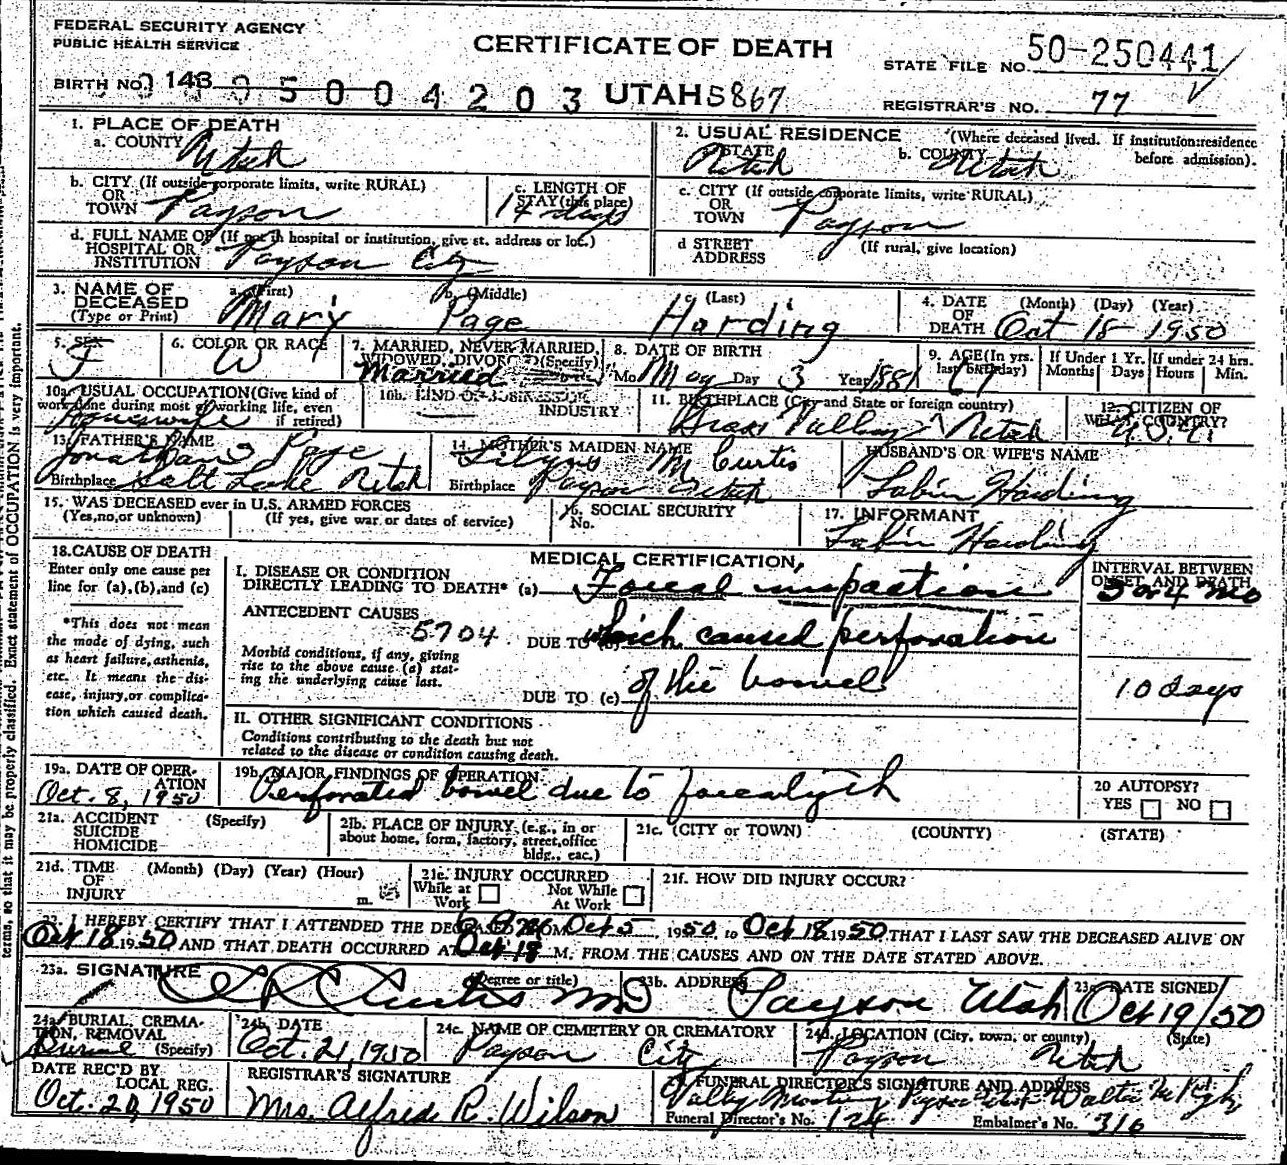 FEDERAL SECURITY AGENCY
PUBLIC HEALTH SERVICE
CERTIFICATE OF DEATH
STATE FILE NO. 50-250441
BIRTH NO. 143 05004203 UTAH 5867
REGISTRAR'S NO. 77
1. PLACE OF DEATH
a. COUNTY Utah
2. USUAL RESIDENCE (Where deceased lived. If institution:residence before admission).
a. STATE Utah b. COUNTY Utah
b. CITY (If outside corporate limits, write RURAL) OR TOWN Payson
c. LENGTH OF STAY (this place) 14 days
c. CITY (If outside corporate limits, write RURAL) OR TOWN Payson
d. FULL NAME OF (If not in hospital or institution, give st. address or loc.) HOSPITAL OR INSTITUTION Payson City
d STREET ADDRESS (If rural, give location)
3. NAME OF DECEASED (Type or Print)
a. (First) Mary b. (Middle) Page c. (Last) Harding
4. DATE OF DEATH (Month) (Day) (Year) Oct 18 1950
5. SEX F
6. COLOR OR RACE W
7. MARRIED, NEVER MARRIED, WIDOWED, DIVORCED (Specify) Married
8. DATE OF BIRTH Mo May Day 3 Year 1881
9. AGE (In yrs. last birthday)
If Under 1 Yr. Months Days
If under 24 hrs. Hours Min.
10a. USUAL OCCUPATION (Give kind of work done during most of working life, even if retired) Housewife
10b. KIND OF BUSINESS OR INDUSTRY
11. BIRTHPLACE (City and State or foreign country) Grass Valley Utah
12. CITIZEN OF WHAT COUNTRY?
13. FATHER'S NAME Jonathan Page
Birthplace Salt Lake Utah
14. MOTHER'S MAIDEN NAME M Curtis
Birthplace Payson Utah
HUSBAND'S OR WIFE'S NAME
Sabin Harding
15. WAS DECEASED ever in U.S. ARMED FORCES
(Yes, no, or unknown) (If yes, give war or dates of service)
16. SOCIAL SECURITY No.
17. INFORMANT
Sabin Harding
18. CAUSE OF DEATH
Enter only one cause per line for (a), (b), and (c)
*This does not mean the mode of dying, such as heart failure, asthenia, etc. It means the disease, injury, or complication which caused death.
MEDICAL CERTIFICATION,
I. DISEASE OR CONDITION DIRECTLY LEADING TO DEATH* (a) Foecal impaction
INTERVAL BETWEEN ONSET AND DEATH
3 or 4 mo
ANTECEDENT CAUSES
5704
DUE TO (b) which caused perforation
Morbid conditions, if any, giving rise to the above cause (a) stating the underlying cause last.
DUE TO (c) of the bowel
10 days
II. OTHER SIGNIFICANT CONDITIONS
Conditions contributing to the death but not related to the disease or condition causing death.
19a. DATE OF OPERATION Oct. 8, 1950
19b. MAJOR FINDINGS OF OPERATION
Perforated bowel due to foecalyth
20 AUTOPSY?
YES NO
21a. ACCIDENT SUICIDE HOMICIDE (Specify)
21b. PLACE OF INJURY (e.g., in or about home, form, factory, street, office bldg., eac.)
21c. (CITY or TOWN) (COUNTY) (STATE)
21d. TIME OF INJURY (Month) (Day) (Year) (Hour) m.
21e. INJURY OCCURRED
While at Work Not While At Work
21f. HOW DID INJURY OCCUR?
22. I HEREBY CERTIFY THAT I ATTENDED THE DECEASED FROM Oct 5, 1950 to Oct 18 1950 THAT I LAST SAW THE DECEASED ALIVE ON
Oct 18 1950 AND THAT DEATH OCCURRED AT Oct 18 M. FROM THE CAUSES AND ON THE DATE STATED ABOVE.
23a. SIGNATURE (Degree or title) Curtis MD
23b. ADDRESS Payson Utah
23c. DATE SIGNED Oct 19/50
24a. BURIAL, CREMATION, REMOVAL (Specify) Burial
24b. DATE Oct. 21, 1950
24c. NAME OF CEMETERY OR CREMATORY Payson City
24d. LOCATION (City, town, or county) (State) Payson Utah
DATE REC'D BY LOCAL REG. Oct. 20, 1950
REGISTRAR'S SIGNATURE
Mrs. Alfred R. Wilson
25. FUNERAL DIRECTOR'S SIGNATURE AND ADDRESS
Valley Mortuary Payson Utah Walter
Funeral Director's No. 124 Embalmer's No. 316
terms, so that it may be properly classified. Exact statement of OCCUPATION is very important.